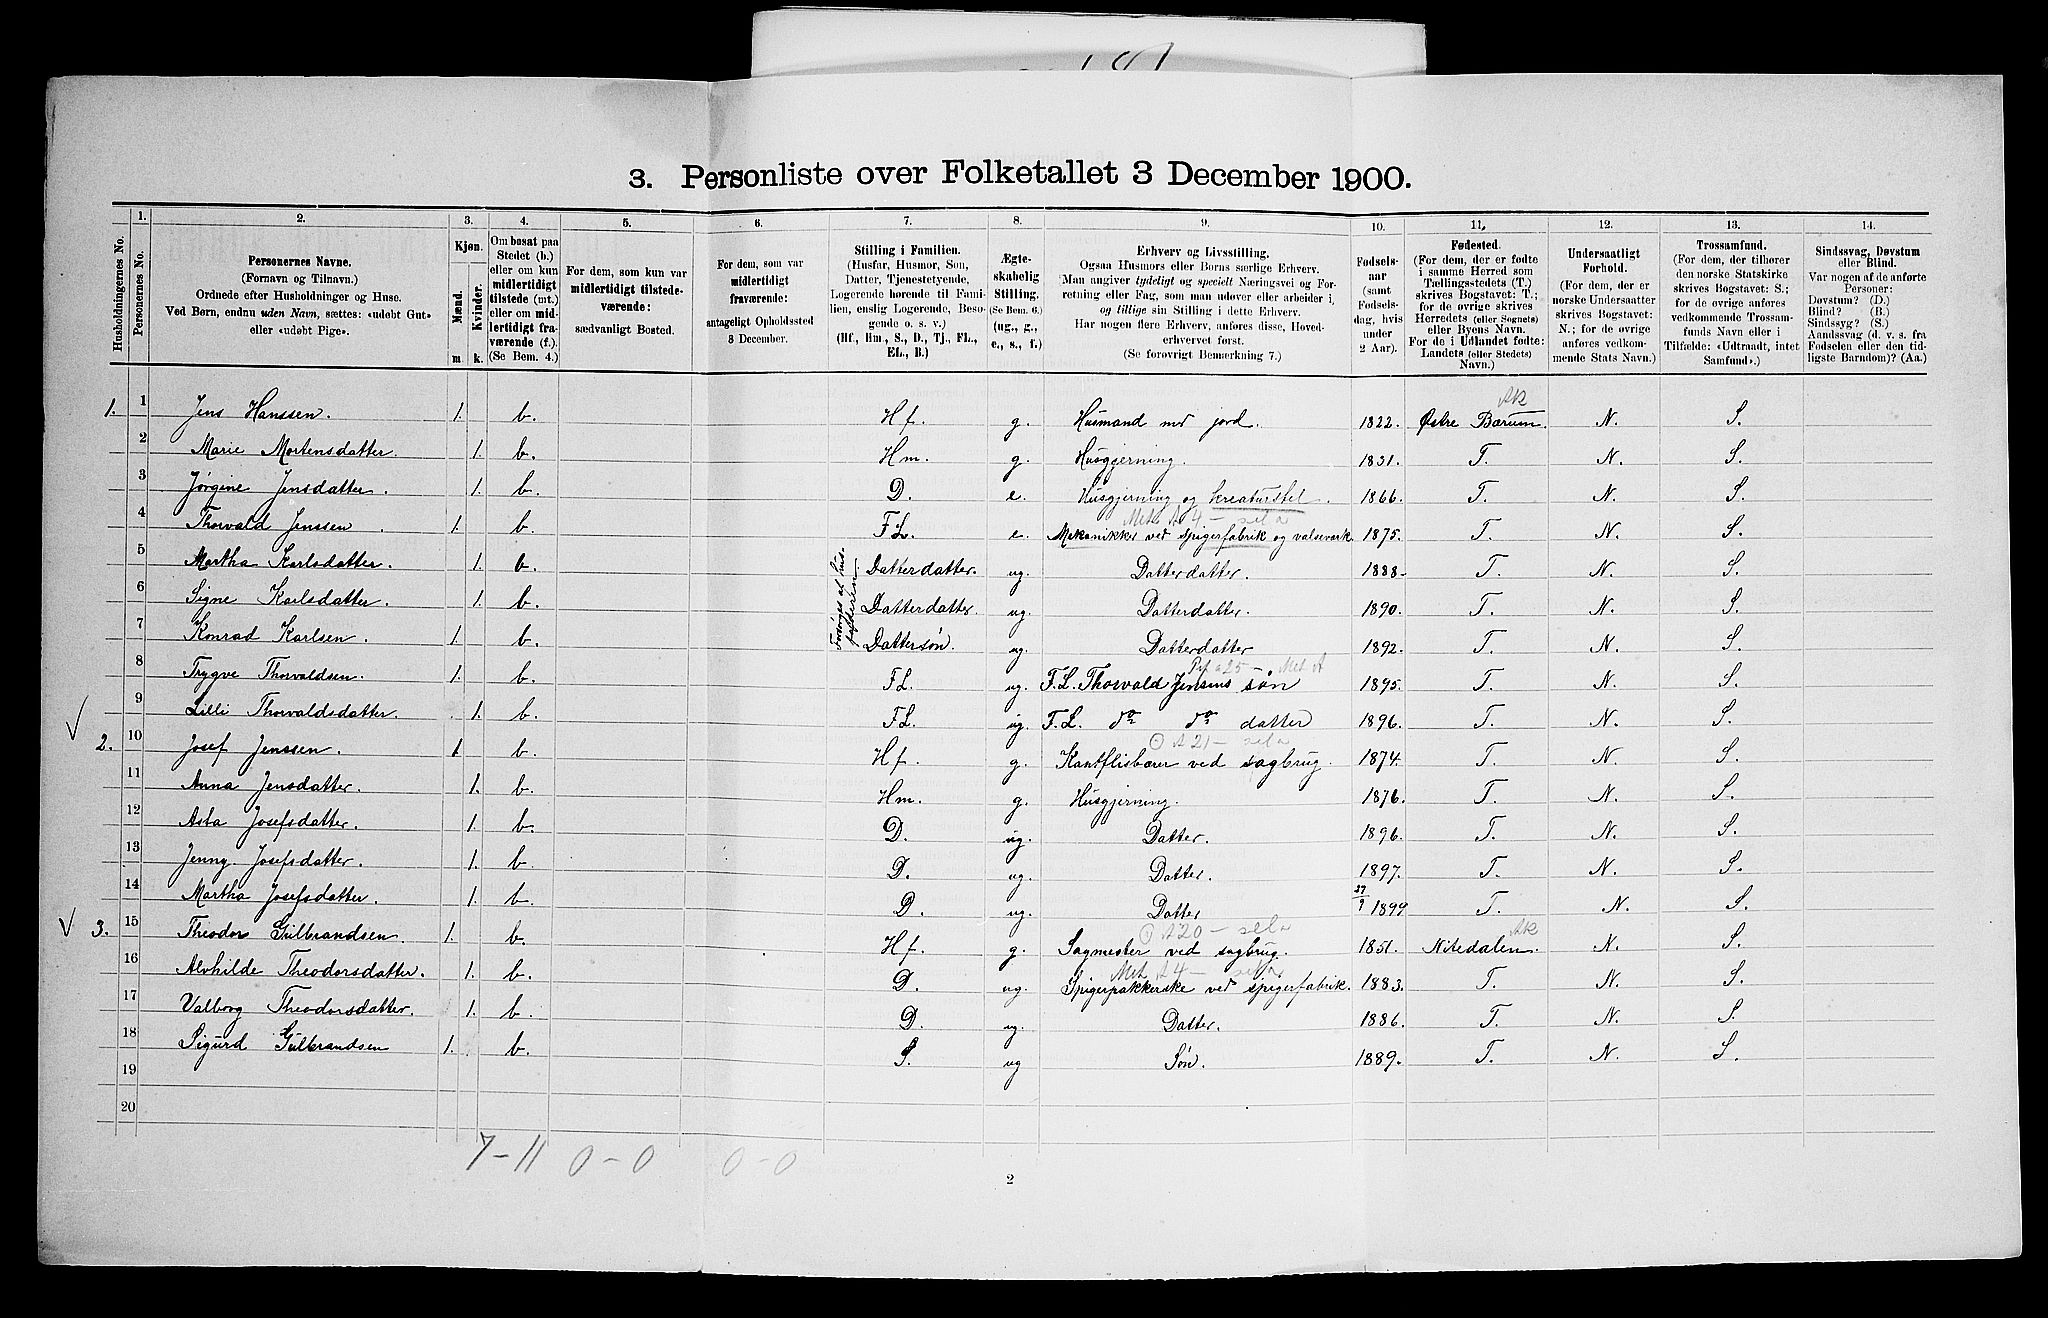 3. Personliste over Folketallet 3 December 1900.
Husholdningernes No.
1. Personernes No.
2. Personernes Navne. (Fornavn og Tilnavn.) Ordnede efter Husholdninger og Huse. Ved Børn, endnu uden Navn, sættes: «udøbt Gut» eller «udøbt Pige».
3. Kjøn. Mænd. m. Kvinder. k.
4. Om bosat paa Stedet (b.) eller om kun midlertidigt tilstede (mt.) eller om midlertidigt fraværende (f.). (Se Bem. 4.)
5. For dem, som kun var midlertidigt tilstedeværende: sædvanligt Bosted.
6. For dem, som var midlertidigt fraværende: antageligt Opholdssted 3 December.
7. Stilling i Familien. (Husfar, Husmor, Søn, Datter, Tjenestetyende, Logerende hørende til Familien, enslig Logerende, Besøgende o. s. v.) (Hf., Hm., S., D., Tj., FL., EL., B.)
8. Ægteskabelig Stilling. (Se Bem. 6.) (ug., g., e., s., f.)
9. Erhverv og Livsstilling. Ogsaa Husmors eller Børns særlige Erhverv. Man angiver tydeligt og specielt Næringsvei og Forretning eller Fag, som man udøver eller arbeider i, og tillige sin Stilling i dette Erhverv. Har nogen flere Erhverv, anføres disse, Hovederhvervet først. (Se forøvrigt Bemærkning 7.)
10. Fødselsaar (samt Fødselsdag, hvis under 2 Aar).
11. Fødested. (For dem, der er fødte i samme Herred som Tællingsstedets (T.) skrives Bogstavet: T.; for de øvrige skrives Herredets (eller Sognets) eller Byens Navn. For de i Udlandet fødte: Landets (eller Stedets) Navn.)
12. Undersaatligt Forhold. (For dem, der er norske Undersaatter skrives Bogstavet: N.; for de øvrige anføres vedkommende Stats Navn.)
13. Trossamfund. (For dem, der tilhører den norske Statskirke skrives Bogstavet: S.; for de øvrige anføres vedkommende Trossamfunds Navn eller i Tilfælde: «Udtraadt, intet Samfund».)
14. Sindssvag, Døvstum eller Blind. Var nogen af de anførte Personer: Døvstum? (D.) Blind? (B.) Sindssyg? (S.) Aandssvag (d. v. s. fra Fødselen eller den tidligste Barndom)? (Aa.)
Ak
1. 1 Jens Hanssen. 1. b. Hf. g. Husmand med jord. 1822. Østre Bærum. N. S.
2 Marie Mortensdatter. 1. b. Hm. g. Husgjerning. 1831. T. N. S.
3 Jørgine Jensdatter. 1. b. D. e. Husgjerning og kreaturstel. 1866. T. N. S.
Met. A 4 -
4 Thorvald Jenssen. 1. b. F.L. e. Mekanikker ved spigerfabrik og valseverk. 1875. T. N. S.
5 Martha Karlsdatter. 1. b. Datterdatter. ug. Datterdatter. 1888. T. N. S.
6 Signe Karlsdatter. 1. b. Datterdatter. ug. Datterdatter. 1890. T. N. S.
7 Konrad Karlsen. 1. b. Dattersøn. ug. Datterdatter 1892. T. N. S.
25 - Met A
8 Trygve Thorvaldsen. 1. b. F.L. ug. F.L. Thorvald Jensens søn 1895. T. N. S.
9 Lilli Thorvaldsdatter. 1. b. F.L. ug. F.L. do do datter 1896. T. N. S.
A 21 -
2. 10 Josef Jenssen. 1. b. Hf. g. Kantflisbærer ved sagbrug. 1874. T. N. S.
11 Anna Jensdatter. 1. b. Hm. g. Husgjerning. 1876. T. N. S.
12 Asta Josefsdatter. 1. b. D. ug. Datter. 1896. T. N. S.
13 Jenny Josefsdatter. 1. b. D. ug. Datter. 1897. T. N. S.
14 Martha Josefsdatter. 1. b. D. ug. Datter 27/9 1899 T. N. S.
A 20 - Ak
3. 15 Theodor Gulbrandsen. 1. b. Hf. g. Sagmester ved sagbrug. 1851. Nitedalen. N. S.
Met A 4 -
16 Alvhilde Theodorsdatter. 1. b. D. ug. Spigerpakkerske ved spigerfabrik. 1883. T. N. S.
17 Valborg Theodorsdatter. 1. b. D. ug. Datter. 1886. T. N. S.
18 Sigurd Gulbrandsen 1. b. S. ug Søn. 1889. T. N. S.
19
20
7 - 11 0 - 0 0 - 0
2